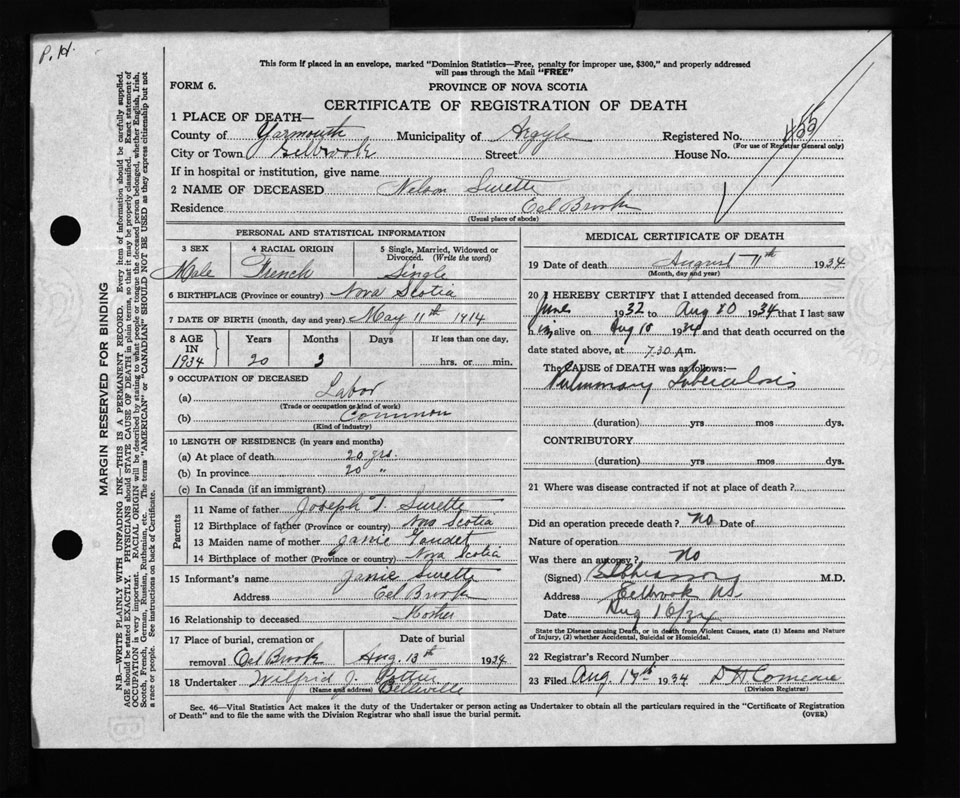 P. H.
This form if placed in an envelope, marked "Dominion Statistics—Free, penalty for improper use, $300," and properly addressed
will pass through the Mail "FREE"
FORM 6.
PROVINCE OF NOVA SCOTIA
CERTIFICATE OF REGISTRATION OF DEATH
1 PLACE OF DEATH—
County of Yarmouth Municipality of Argyle Registered No.
(For use of Registrar General only)
City or Town Eelbrook Street House No.
If in hospital or institution, give name
2 NAME OF DECEASED Nelson Surette
Residence Eel Brook
(Usual place of abode)
PERSONAL AND STATISTICAL INFORMATION
3 SEX 4 RACIAL ORIGIN 5 Single, Married, Widowed or
Divorced. (Write the word)
Male French Single
6 BIRTHPLACE (Province or country) Nova Scotia
7 DATE OF BIRTH (month, day and year) May 11th 1914
8 AGE IN Years Months Days If less than one day,
1934 20 3 hrs. or min.
9 OCCUPATION OF DECEASED
(a) Labor
(Trade or occupation or kind of work)
(b) Common
(Kind of industry)
10 LENGTH OF RESIDENCE (in years and months)
(a) At place of death 20 yrs.
(b) In province 20 "
(c) In Canada (if an immigrant)
Parents
11 Name of father Joseph T. Surette
12 Birthplace of father (Province or country) Nova Scotia
13 Maiden name of mother Janie
14 Birthplace of mother (Province or country) Nova Scotia
15 Informant's name Janie Surette
Address Eel Brook
16 Relationship to deceased Mother
17 Place of burial, cremation or Date of burial
removal Eel Brook Aug. 13th 1934
18 Undertaker Wilfrid J. Pottier
(Name and address) Belleville
MEDICAL CERTIFICATE OF DEATH
19 Date of death August 11th 1934
(Month, day and year)
20 I HEREBY CERTIFY that I attended deceased from
June 1932 to Aug 10 1934 that I last saw
him alive on Aug 10 1934 and that death occurred on the
date stated above, at 7.30 A m.
The CAUSE OF DEATH was as follows:—
Pulmonary Tuberculosis
(duration) yrs mos dys.
CONTRIBUTORY
(duration) yrs mos dys.
21 Where was disease contracted if not at place of death?
Did an operation precede death? No Date of
Nature of operation
Was there an autopsy? No
(Signed) M.D.
Address Eelbrook NS
Date Aug 16/34
State the Disease causing Death, or in death from Violent Causes, state (1) Means and Nature
of Injury, (2) whether Accidental, Suicidal or Homicidal.
22 Registrar's Record Number
23 Filed Aug 17th 1934 D H Comeau
(Division Registrar)
Sec. 46—Vital Statistics Act makes it the duty of the Undertaker or person acting as Undertaker to obtain all the particulars required in the "Certificate of Registration
of Death" and to file the same with the Division Registrar who shall issue the burial permit. (OVER)
MARGIN RESERVED FOR BINDING
N.B.—WRITE PLAINLY WITH UNFADING INK—THIS IS A PERMANENT RECORD. Every item of information should be carefully supplied.
AGE should be stated EXACTLY. PHYSICIANS should STATE CAUSE OF DEATH in plain terms, so that it may be properly classified. Exact statement of
OCCUPATION is very important. RACIAL ORIGIN will be described by stating to what people or tongue the deceased person belonged, whether English, Irish,
Scotch, French, German, Russian, Ruthenian, etc. The terms "AMERICAN" or "CANADIAN" SHOULD NOT BE USED as they express citizenship but not
a race or people. See instructions on back of Certificate.